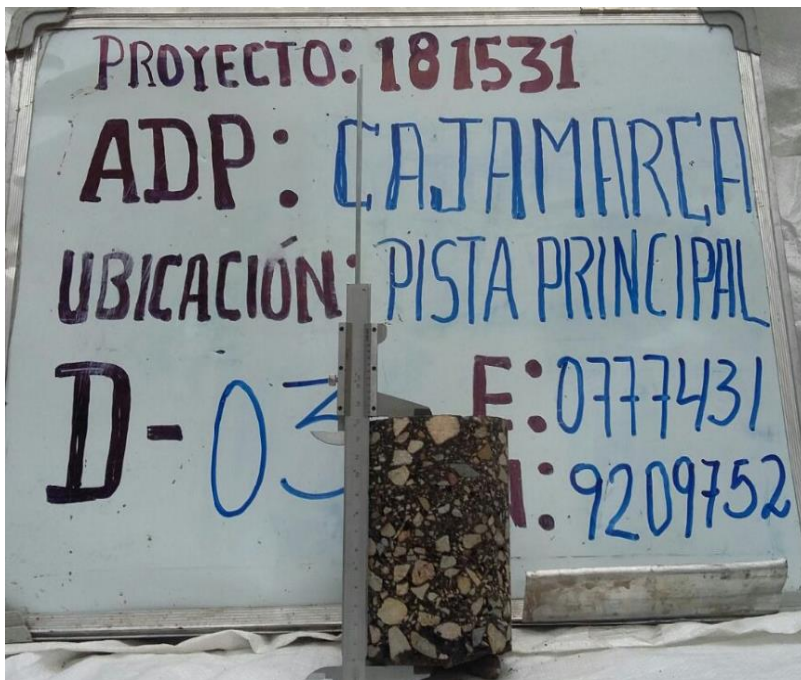 PROYECTO: 181531
ADP: CAJAMARCA
UBICACIÓN: PISTA PRINCIPAL
D-03 E: 0777431
N: 9209752